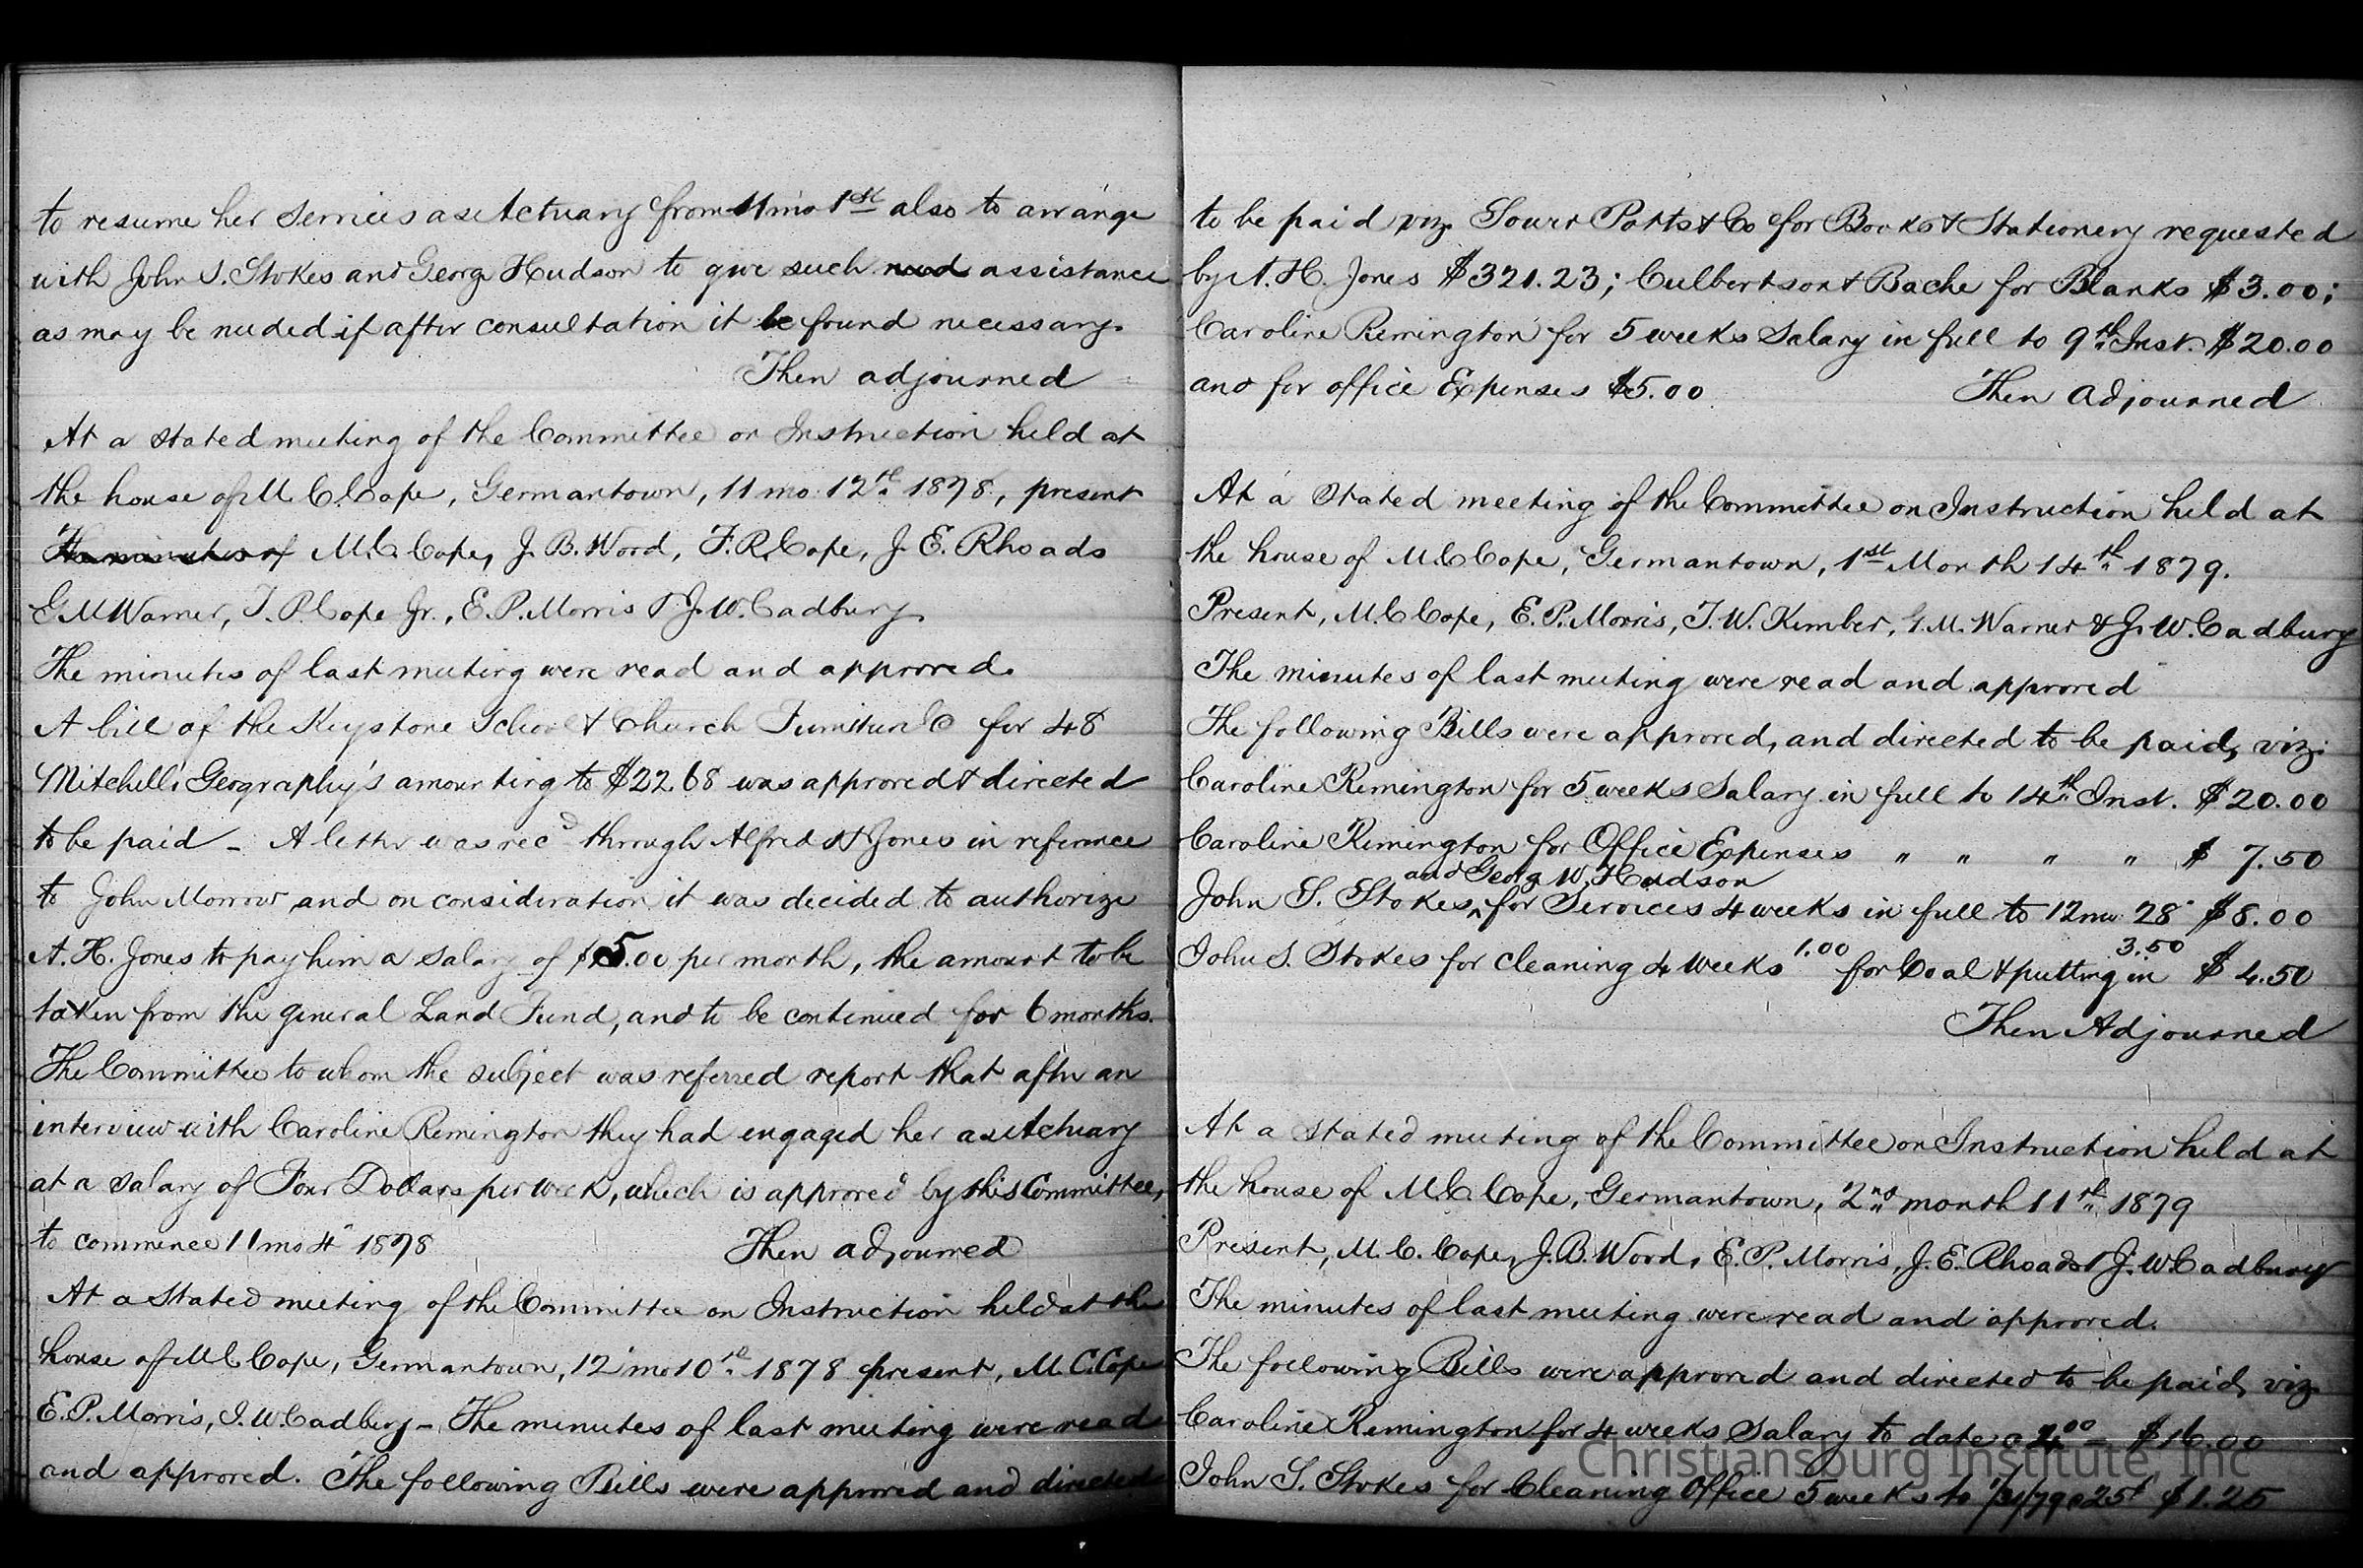 to resume her services as Actuary from 11 mo 1st also to arrange
with John S. Stokes and Georg Hudson to give such need assistance
as may be needed if after consultation it be found necessary.
Then adjourned
At a stated meeting of the Committee on Instruction held at
the house of M. C. Cope, Germantown, 11 mo. 12th 1878, present
The minutes of M. C. Cope, J. B. Wood, F. R. Cope, J. E. Rhoads
G M Warner, T. P. Cope Jr., E. P. Morris & J. W. Cadbury
The minutes of last meeting were read and approved.
A bill of the Keystone School & Church Furniture Co for 48
Mitchell's Geography's amounting to $22.68 was approved & directed
to be paid - A letter was recd through Alfred H Jones in reference
to John Morrow and on consideration it was decided to authorize
A. H. Jones to pay him a salary of $ 5.00 per month, the amount to be
taken from the general Land Fund, and to be continued for 6 months.
The Committee to whom the subject was referred report that after an
interview with Caroline Remington they had engaged her as Actuary
at a salary of Four Dollars per week, which is approved by this Committee,
to commence 11 mo 4" 1878 Then adjourned
At a Stated meeting of the Committee on Instruction held at the
house of M C Cope, Germantown, 12 mo 10th 1878 present, M. C. Cope
E. P. Morris, J. W Cadbury - The minutes of last meeting were read
and approved. The following Bills were approved and directed
to be paid viz. Sower Potts & Co for Books & Stationery requested
by A. H. Jones $321.23; Culbertson & Bache for Blanks $3.00;
Caroline Remington for 5 weeks Salary in full to 9th Inst. $20.00
and for office Expenses $5.00 Then adjourned
At a Stated meeting of the Committee on Instruction held at
the house of M. C Cope, Germantown, 1st Month 14th 1879.
Present, M. C Cope, E. P. Morris, T. W. Kimber, G. M. Warner & J. W. Cadbury
The minutes of last meeting were read and approved
The following Bills were approved, and directed to be paid, viz:
Caroline Remington for 5 weeks Salary in full to 14th Inst. $20.00
Caroline Remington for Office Expenses " " " " $ 7.50
and Georg W. Hudson
John S. Stokes, ^ for Services 4 weeks in full to 12 mo 28" $8.00
John S. Stokes for cleaning 4 Weeks 1.00 for Coal & putting in 3.50 $ 4.50
Then Adjourned
At a Stated meeting of the Committee on Instruction held at
the house of M. C. Cope, Germantown, 2nd month 11th 1879
Present, M. C. Cope, J. B. Wood, E. P. Morris, J. E. Rhoads & J. W. Cadbury
The minutes of last meeting were read and approved.
The following Bills were approved and directed to be paid, viz.
Caroline Remington for 4 weeks Salary to date @ 4.00 - $16.00
John S. Stokes for Cleaning Office 5 weeks to 1/31/79 @ 25¢ $1.25
Christiansburg Institute, Inc